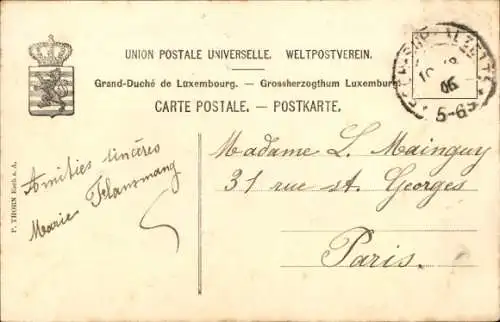 UNION POSTALE UNIVERSELLE. WELTPOSTVEREIN.
Grand-Duché de Luxembourg. — Grossherzogthum Luxemburg
CARTE POSTALE. — POSTKARTE.
06
5-6
Amitiés sincères
Marie
Madame L. Mainguy
31 rue st. Georges
Paris.
P. THORN Esch s. A.